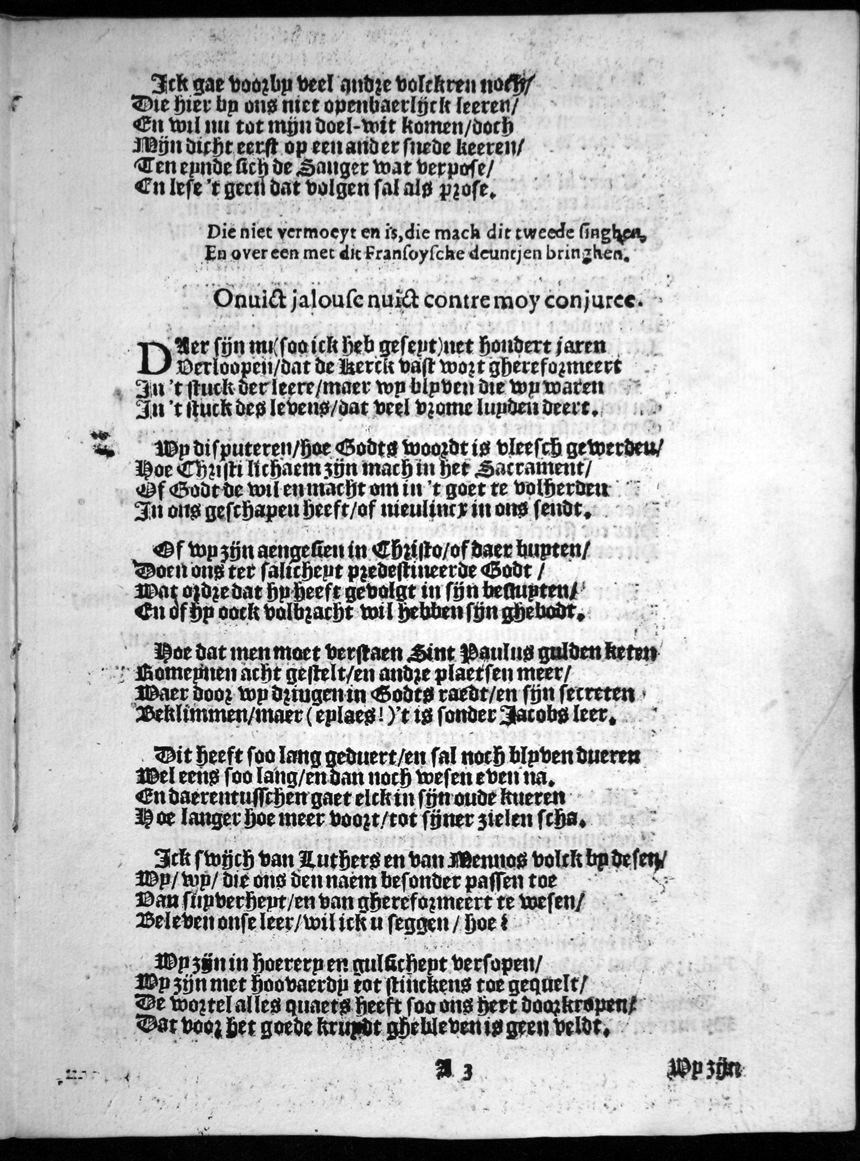 Ick gae voorby veel andre volckren noch/
Die hier by ons niet openbaerlijck leeren/
En wil nu tot mijn doel-wit komen/doch
Mijn dicht eerst op een ander snede keeren/
Ten eynde sich de Sanger wat verpose/
En lese 't geen dat volgen sal als prose.
Die niet vermoeyt en is, die mach dit tweede singhen,
En over een met dit Fransoysche deuntjen bringhen.
Onuict jalouse nuict contre moy conjuree.
DAer sijn nu (soo ick heb geseyt) net hondert jaren
Verloopen/dat de Kerck vast wort ghereformeert
In 't stuck der leere/maer wy blyven die wy waren
In 't stuck des levens/dat veel vrome luyden deert.
Wy disputeren/hoe Godts woordt is vleesch gewerden/
Hoe Christi lichaem zijn mach in het Sacrament/
Of Godt de wil en macht om in 't goet te volherden
In ons geschapen heeft/of nieulincx in ons sendt.
Of wy zijn aengesien in Christo/of daer buyten/
Doen ons ter salicheyt predestineerde Godt/
Wat ordre dat hy heeft gevolgt in sijn besluyten/
En of hy oock volbracht wil hebben sijn ghebodt.
Hoe dat men moet verstaen Sint Paulus gulden keten
Romeynen acht gestelt/en andre plaetsen meer/
Waer door wy dringen in Godts raedt/en sijn secreten
Beklimmen/maer (eylaes!) 't is sonder Jacobs leer.
Dit heeft soo lang geduert/en sal noch blyven dueren
Wel eens soo lang/en dan noch wesen even na.
En daerentusschen gaet elck in sijn oude kueren
Hoe langer hoe meer voort/tot sijner zielen scha.
Ick swijch van Luthers en van Mennos volck by desen/
Wy/wy/die ons den naem besonder passen toe
Van suyverheyt/en van ghereformeert te wesen/
Beleven onse leer/wil ick u seggen/hoe?
Wy zijn in hoererye en gulsicheyt versopen/
Wy zijn met hoovaerdy tot stinckens toe gequelt/
De wortel alles quaets heeft soo ons hert doorkropen/
Dat voor het goede kruydt ghebleven is geen veldt.
A 3
Wy zijn